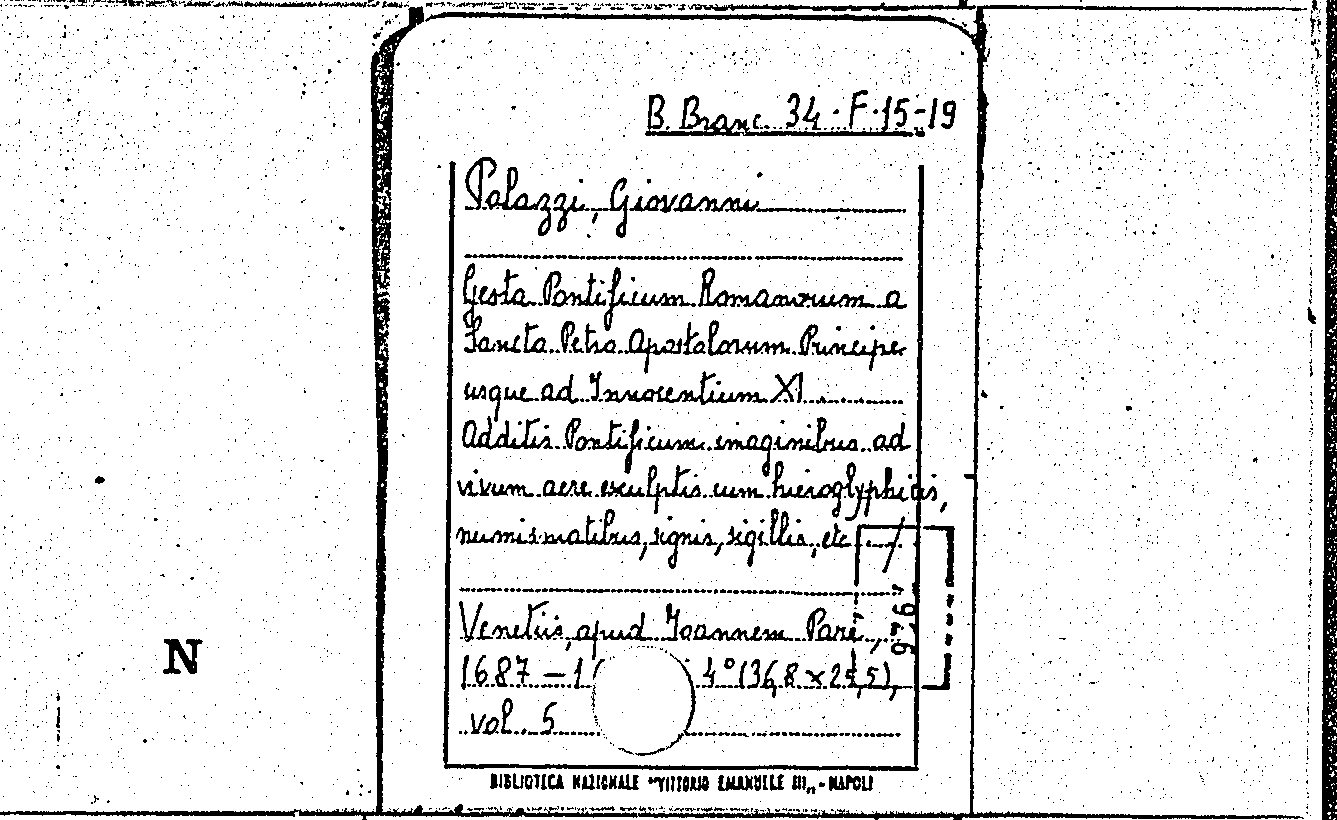 B. Branc. 34.F.15-19
Palazzi, Giovanni
Gesta Pontificum Romanorum a
Sancto Petro Apostolorum Principe
usque ad Innocentium XI......
Additis Pontificum imaginibus ad
vivum aere exculptis cum hieroglyphicis,
numismatibus, signis, sigillis, etc. ../.
Venetiis, apud Joannem Parè,
1687 – 1 4° (36,8 x 25,5),
vol. 5
976
N
BIBLIOTECA NAZIONALE "VITTORIO EMANUELE III" - NAPOLI